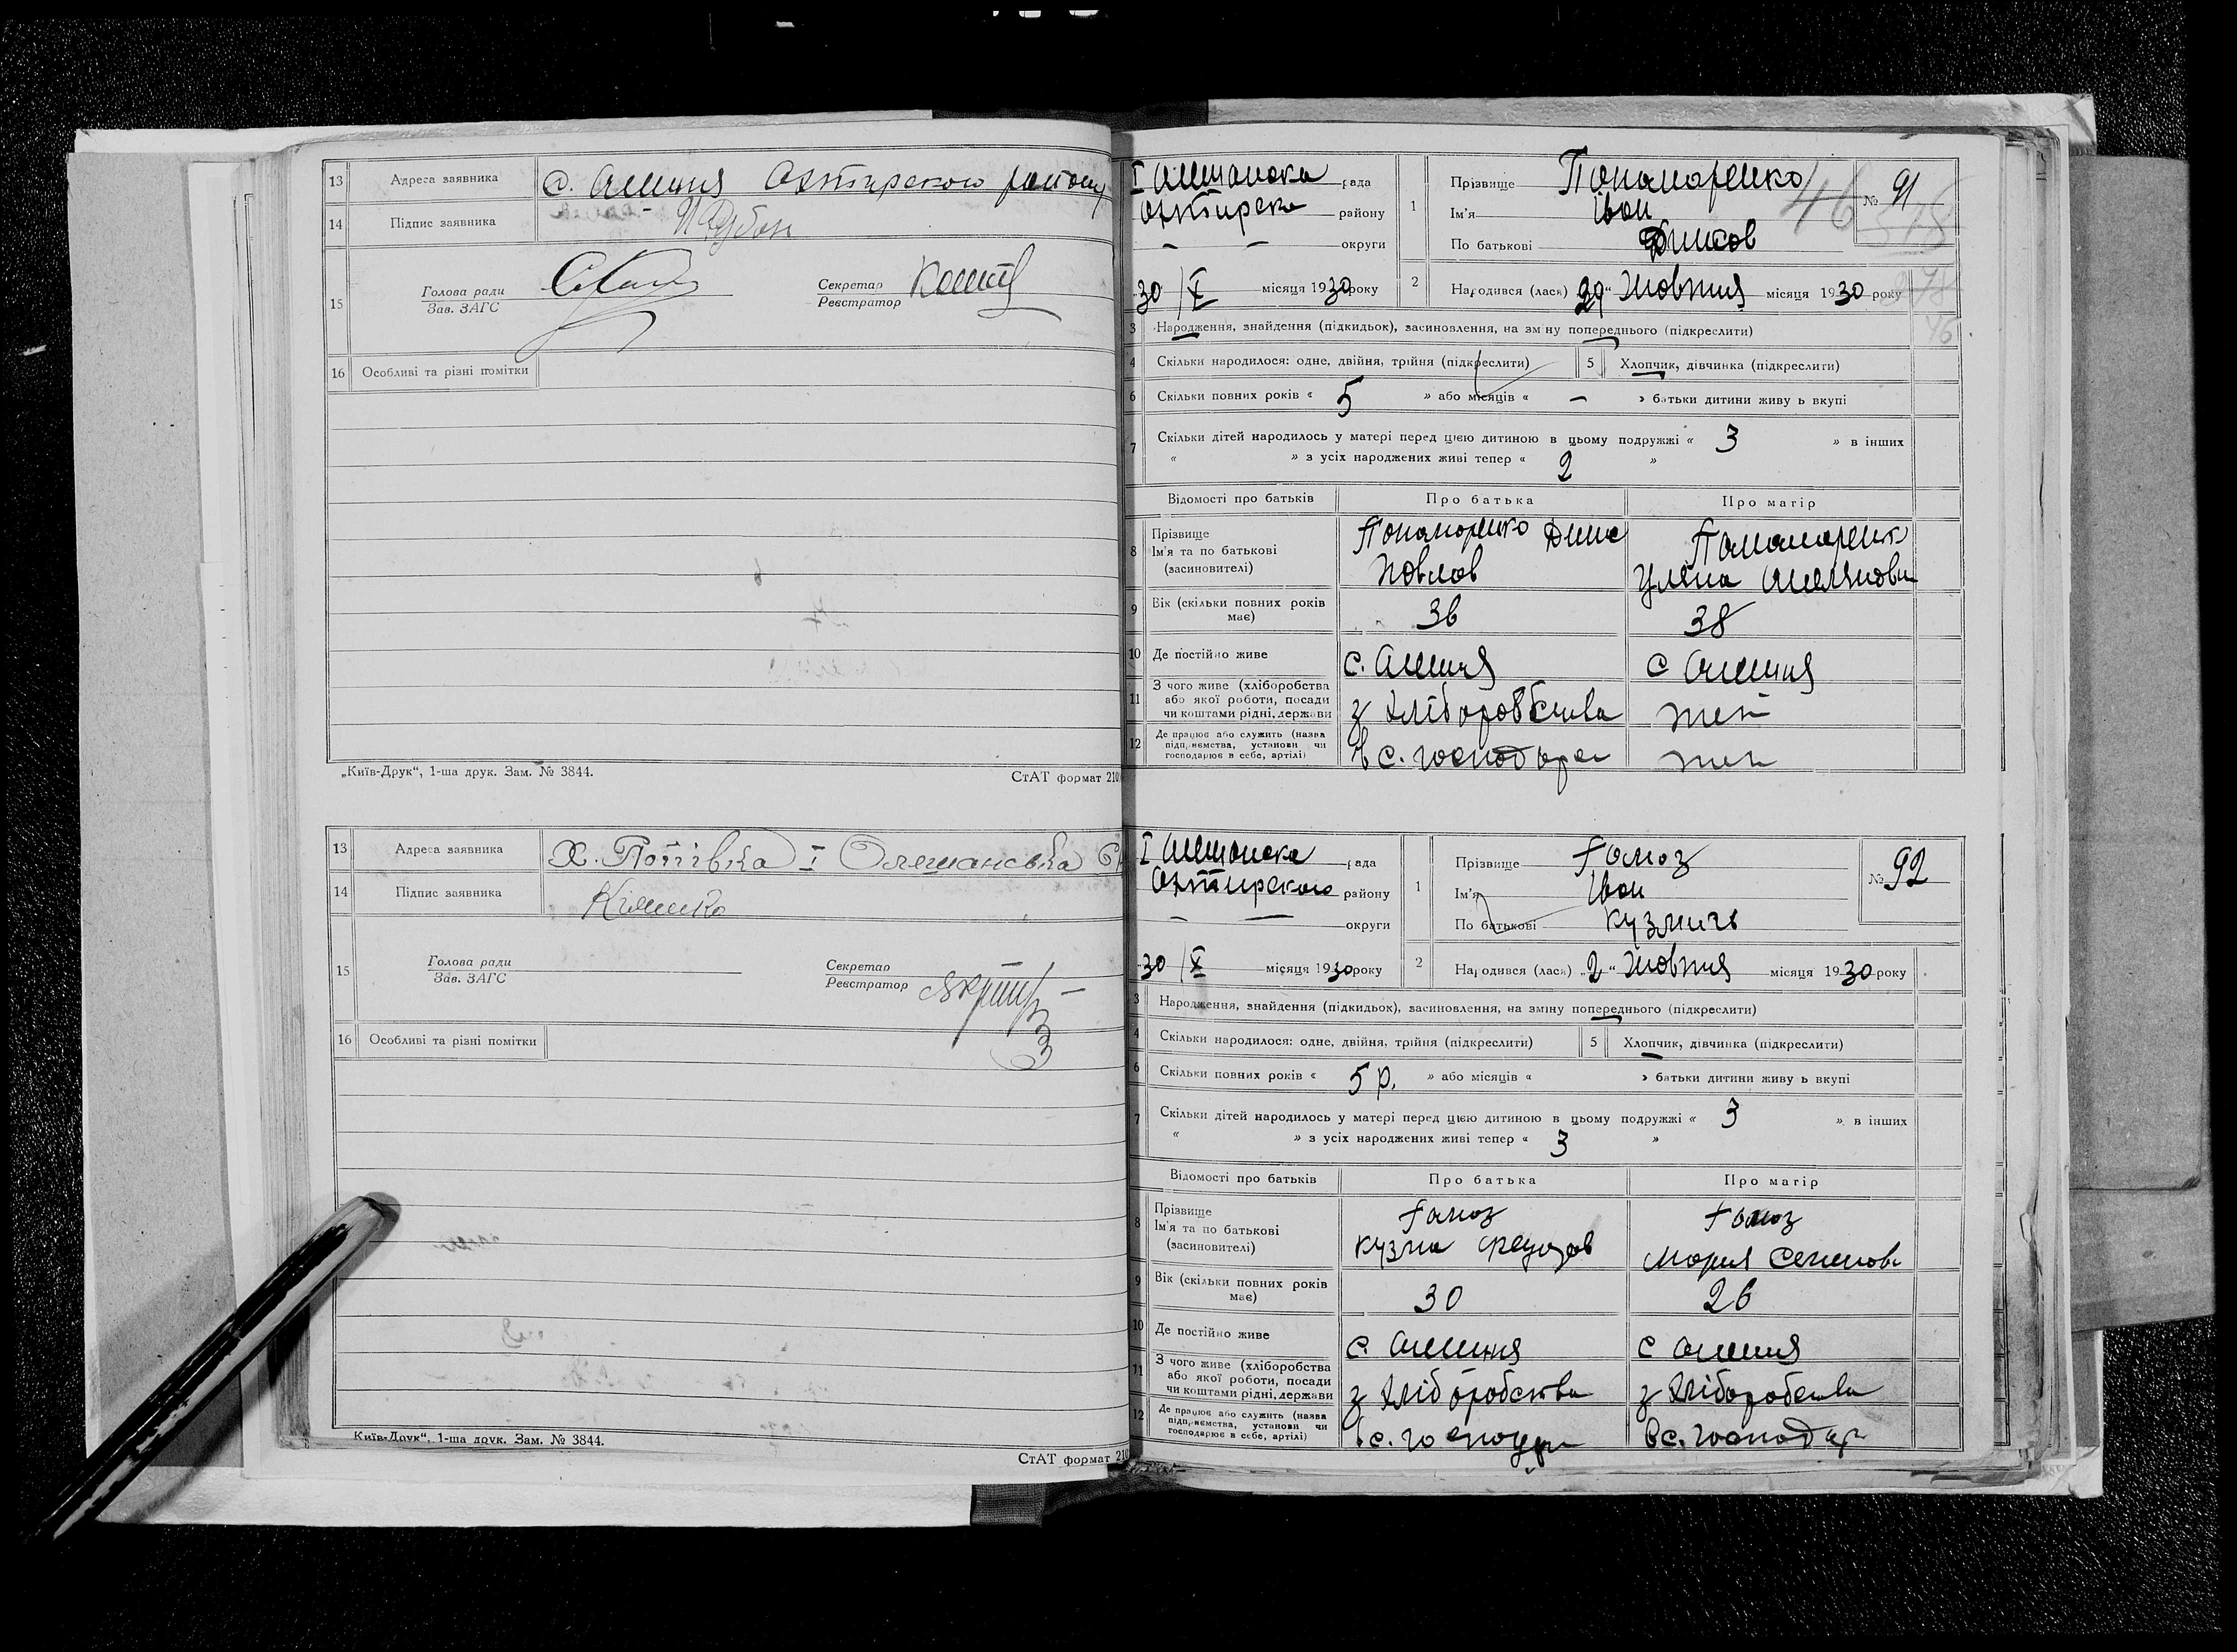 13 Адреса заявника с. Олешня Охтирского району
14 Підпис заявника
15 Голова ради
Зав. ЗАГС
Секретар
Реєстратор
16 Особливі та різні помітки
„Київ-Друк“, 1-ша друк. Зам. № 3844.
СтАТ формат 210
13 Адреса заявника Х. Попівка I Олешанська
14 Підпис заявника
15 Голова ради
Зав. ЗАГС
Секретар
Реєстратор
16 Особливі та різні помітки
Київ-Друк“, 1-ша друк. Зам. № 3844.
СтАТ формат 210
I Олешанска рада
Охтирско району
— — округи
30/X місяця 1930 року
1 Прізвище Пономаренко
Ім'я Іван
По батькові
№ 91
46
2 Народився (лася) „29“ Жовтня місяця 1930 року
3 Народження, знайдення (підкидьок), засиновлення, на зміну попереднього (підкреслити)
4 Скільки народилося: одне, двійня, трійня (підкреслити)
5 Хлопчик, дівчинка (підкреслити)
6 Скільки повних років « 5 » або місяців « — » батьки дитини живуть вкупі
7 Скільки дітей народилось у матері перед цією дитиною в цьому подружжі « 3 » в інших
« » з усіх народжених живі тепер « 2 »
Відомості про батьків Про батька Про матір
8 Прізвище
Ім'я та по батькові
(засиновителі)
Пономаренко
Павлов
Пономаренк
Уляна Омелянови
9 Вік (скільки повних років має) 36 38
10 Де постійно живе с. Олешня с Олешня
11 З чого живе (хліборобства
або якої роботи, посади
чи коштами рідні, держави
з хліборобства теж
12 Де працює або служить (назва
підприємства, установи чи
господарює в себе, артілі)
в с. господарс теж
I Олешанска рада
Охтирского району
— — округи
30/X місяця 1930 року
1 Прізвище Гамоз
Ім'я Іван
По батькові Кузмичь
№ 92
2 Народився (лася) „2“ Жовтня місяця 1930 року
3 Народження, знайдення (підкидьок), засиновлення, на зміну попереднього (підкреслити)
4 Скільки народилося: одне, двійня, трійня (підкреслити)
5 Хлопчик, дівчинка (підкреслити)
6 Скільки повних років « 5 р. » або місяців « » батьки дитини живуть вкупі
7 Скільки дітей народилось у матері перед цією дитиною в цьому подружжі « 3 » в інших
« » з усіх народжених живі тепер « 3 »
Відомості про батьків Про батька Про матір
8 Прізвище
Ім'я та по батькові
(засиновителі)
Гамоз
Кузма
Гамоз
Мария Семенов
9 Вік (скільки повних років має) 30 26
10 Де постійно живе с. Олешня с Олешня
11 З чого живе (хліборобства
або якої роботи, посади
чи коштами рідні, держави
з хліборобства з хліборобства
12 Де працює або служить (назва
підприємства, установи чи
господарює в себе, артілі)
в с. господар